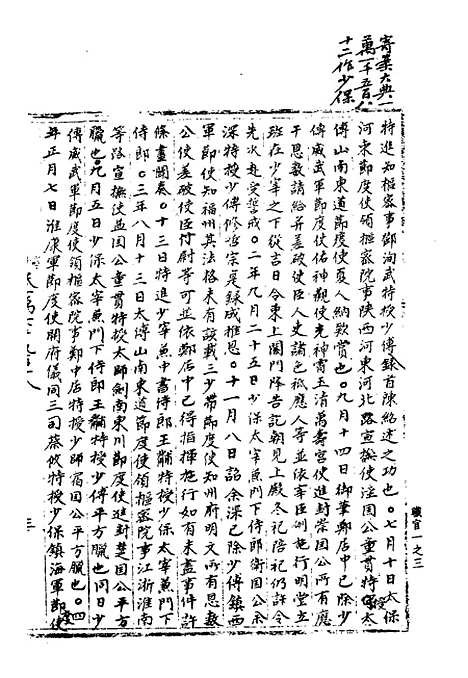 寄案大典一
萬一千五百八
十二作少保
特進知樞密事鄧洵武特授少傅錄首陳紹述之功也○七月十日太保
河東節度使領樞密院事陝西河東河北路宣撫使涇國公童貫特授太
傅山南東道節度使夏人納款賞也○九月十四日御筆鄭居中已除少
傅威武軍節度使佑神觀使充神霄玉清萬壽宮使進封崇國公所有應
干恩數請給并差破使臣人吏諸色祗應人等並依宰臣例施行明堂立
班在少宰之下從吉日令東上閤門隊告記朝見上殿冬祀陪祀仍許令
先次赴受誓戒○二年九月二十五日少保太宰兼門下侍郎衛國公余
深特授少傅修哲宗寔錄成推恩○十一月八日詔余深已除少傅鎮西
軍節使知福州其法格未有該載三少帶節度使知州府明文所有恩數
公使差破使臣付尉等可並依鄭居中已得指揮施行如有未盡事件許
條畫聞奏○十三日特進少宰兼中書侍郎王黼特授少保太宰兼門下
侍郎○三年八月十三日太傅山南東道節度使領樞密院事江浙淮南
等路宣撫使益國公童貫特授太師劍南東川節度使進封楚國公平方
臘也○九月五日少保太宰兼門下侍郎王黼特授少傅平方臘也同日少
傅威武軍節度使領樞密院事鄭中居特授少師宿國公平方臘也○四
年正月七日淮康軍節度使開府儀同三司蔡攸特授少保鎮海軍節使
職官一之三
三